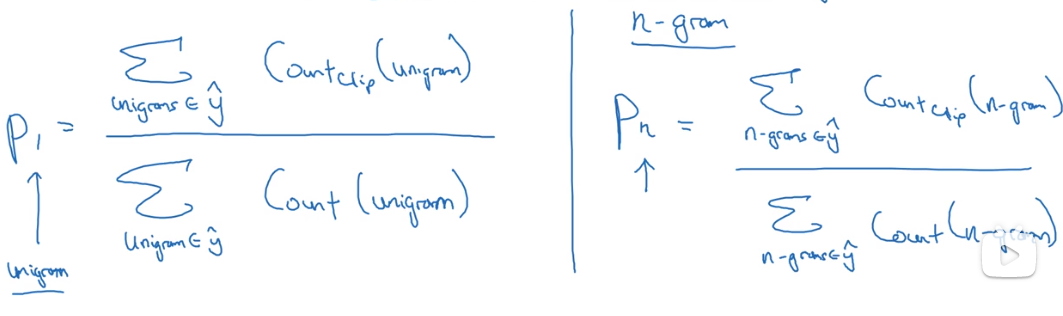 P₁ = Σ unigrams ∈ ŷ Countclip (unigram) / Σ unigram ∈ ŷ Count (unigram)
↑
unigram
n-gram
Pₙ = Σ n-grams ∈ ŷ Countclip (n-gram) / Σ n-grams ∈ ŷ Count (n-gram)
↑